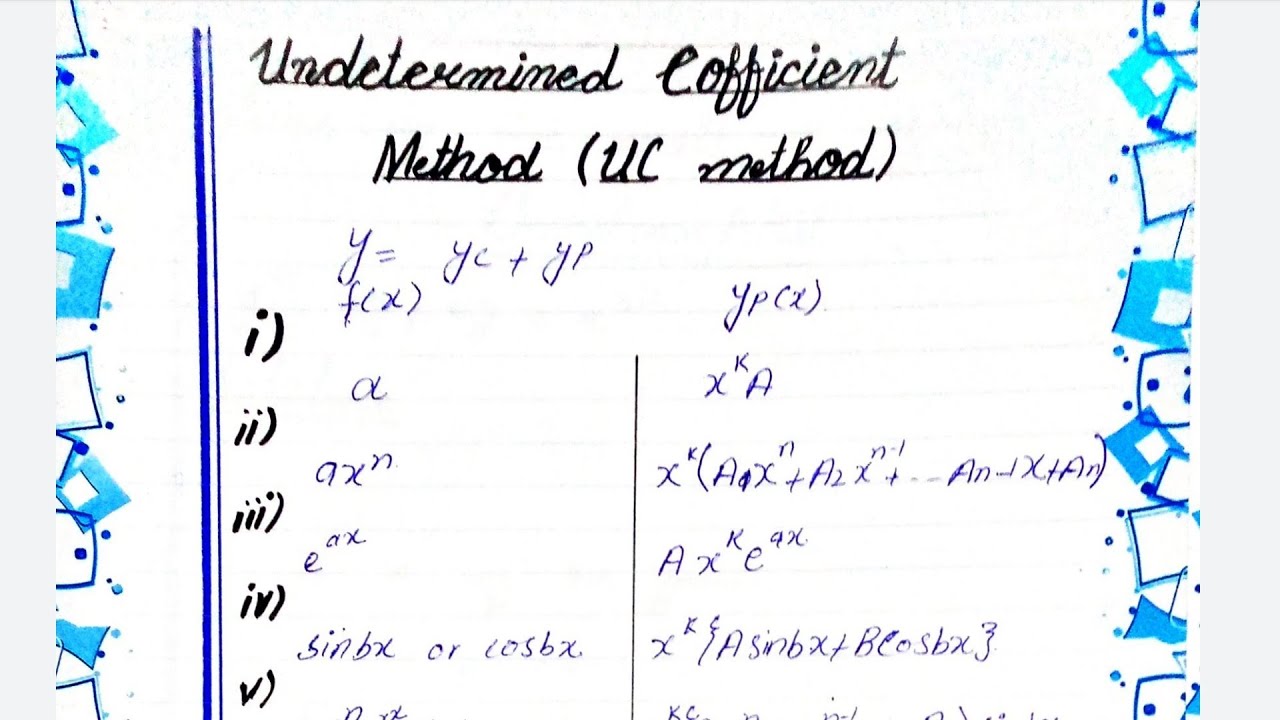 Undetermined Cofficient
Method (UC method)
y = yc + yp
f(x) yp(x)
i)
a x^k A
ii)
ax^n x^k(A1x^n + A2x^n-1 + ... An-1x + An)
iii)
e^ax Ax^k e^ax
iv)
sinbx or cosbx x^k{Asinbx + Bcosbx}
v)